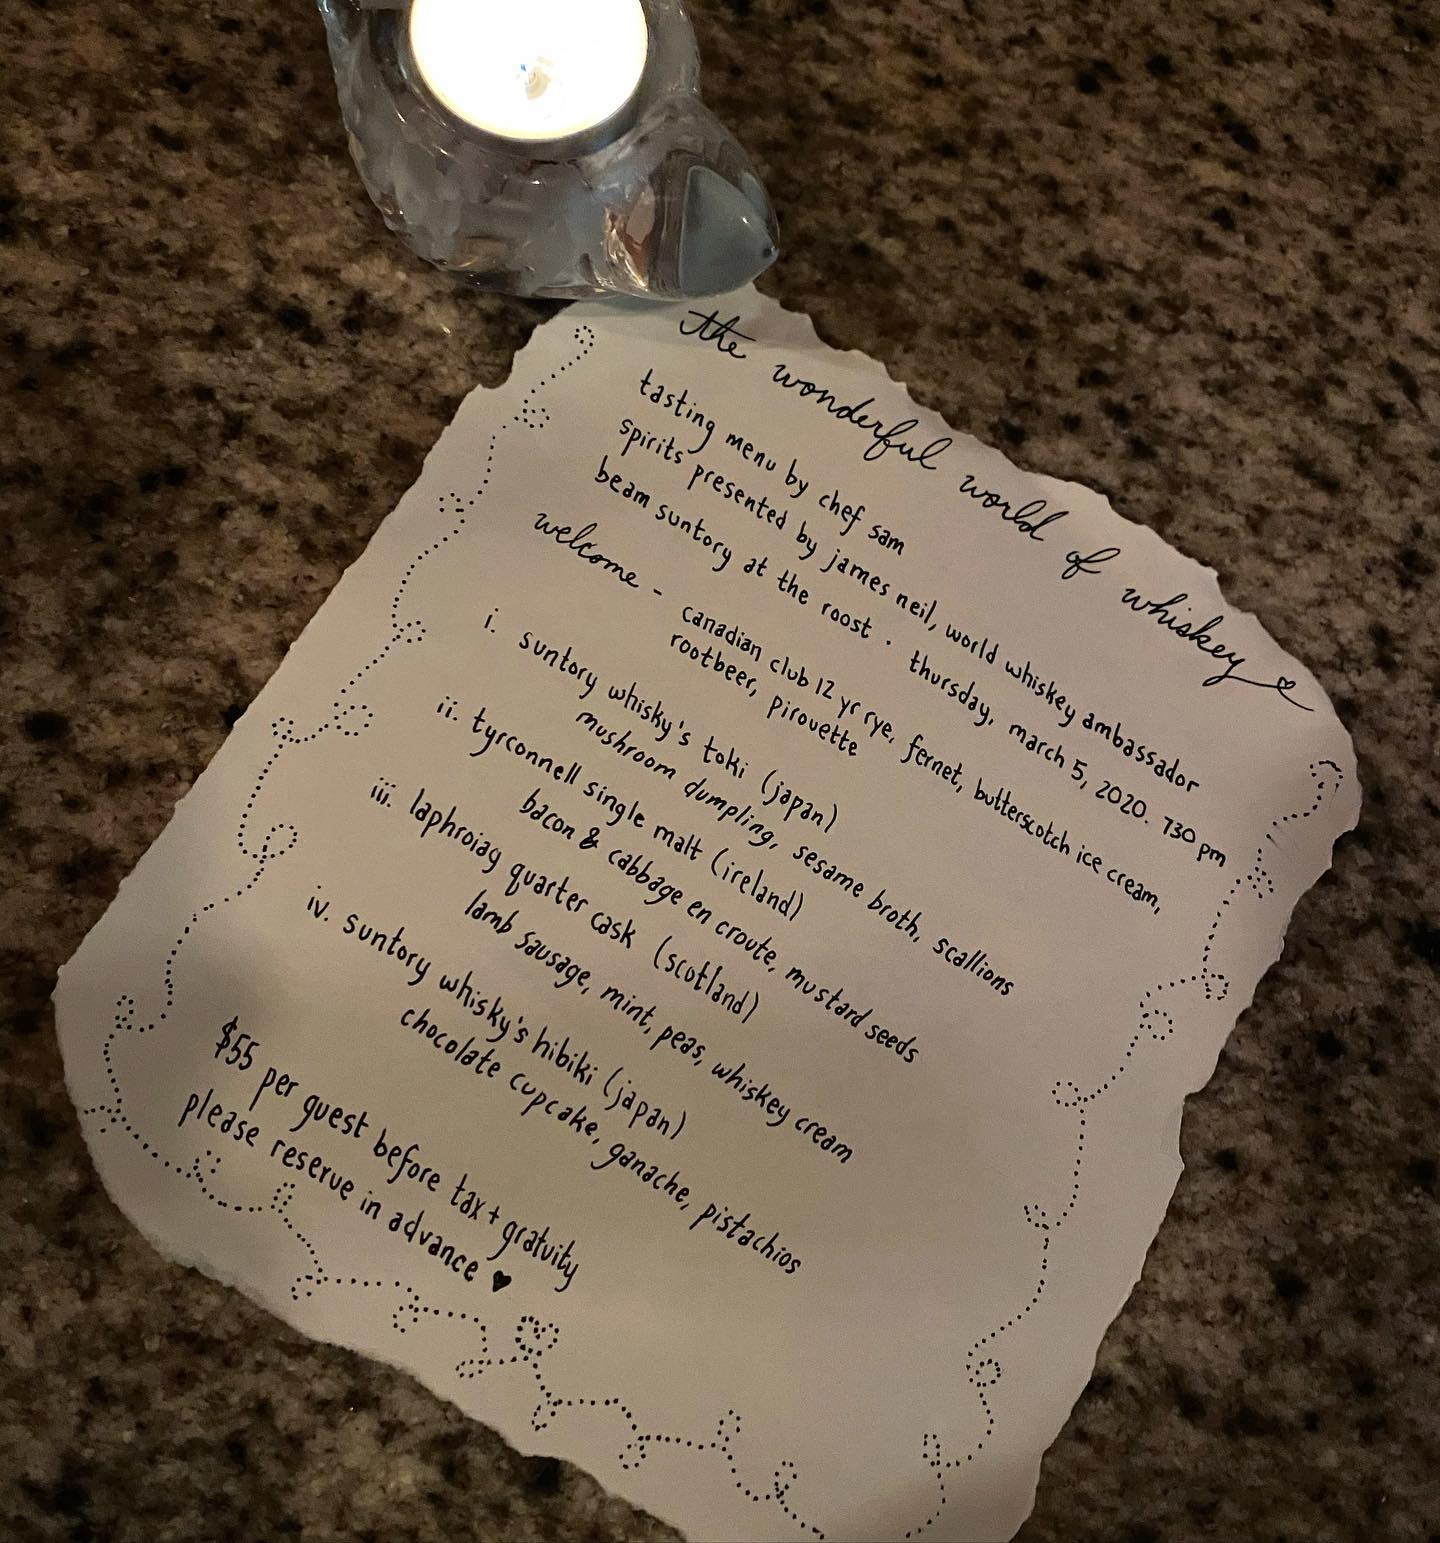 the wonderful world of whiskey
tasting menu by chef sam
spirits presented by james neil, world whiskey ambassador
beam suntory at the roost · thursday, march 5, 2020. 730 pm
welcome - canadian club 12 yr rye, fernet, butterscotch ice cream,
rootbeer, pirouette
i. suntory whisky's toki (japan)
mushroom dumpling, sesame broth, scallions
ii. tyrconnell single malt (ireland)
bacon & cabbage en croute, mustard seeds
iii. laphroiag quarter cask (scotland)
lamb sausage, mint, peas, whiskey cream
iv. suntory whisky's hibiki (japan)
chocolate cupcake, ganache, pistachios
$55 per guest before tax + gratuity
please reserve in advance ♥